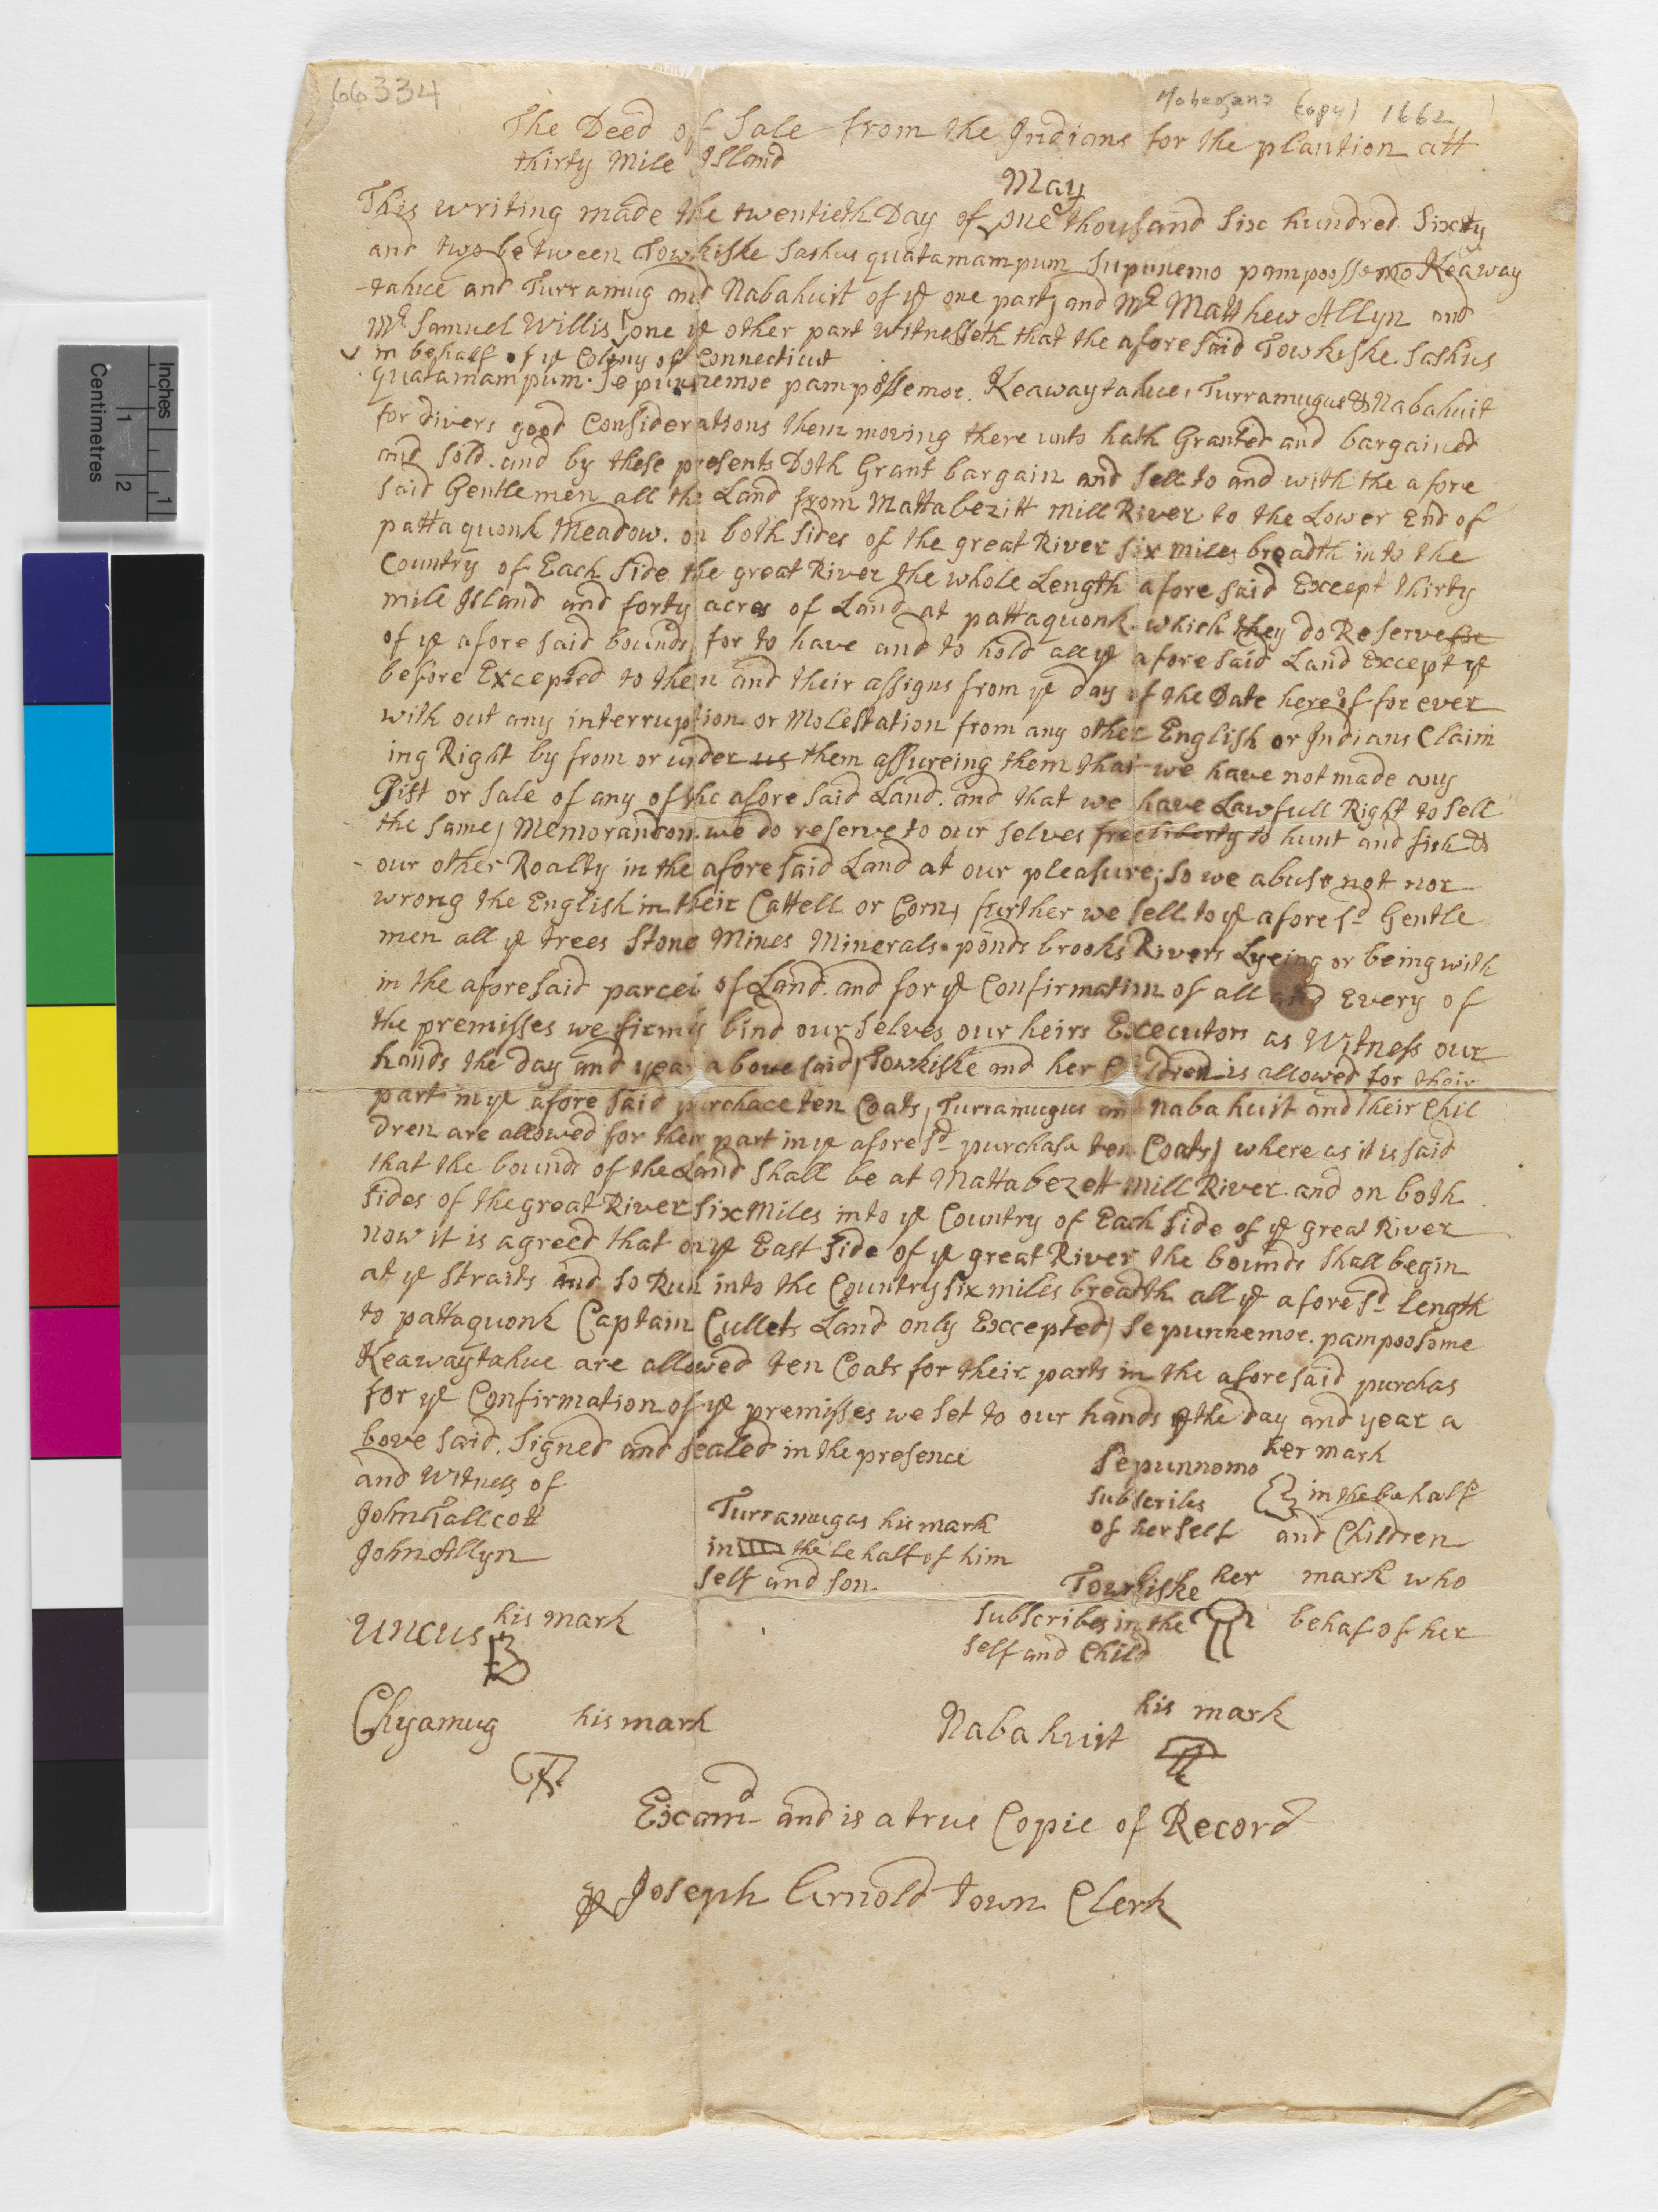 66334
Mohegans (Copy) 1662
The Deed of Sale from the Indians for the plantion att
thirty Mile Island
May
This writing made the twentieth Day of ‸ one thousand Six hundred Sixty
and two between Towkiske Saskus quatamampum Sepunnemo pampoossomo Keaway
tahue and Turramug and Nabahuit of ye one part, and Mr Matthew Allyn and
Mr Samuel Willis ‸ one ye other part Witnesseth that the afore said Towkiske Saskus
in behalf of ye Colony of Connecticut
Quatamampum. Sepunnemoe pampossemoe. Keawaytahue, Turramugus & Nabahuit
for divers good Considerations them moving there unto hath Granted and bargained
and Sold and by these presents Doth Grant bargain and Sell to and with the afore
said Gentlemen all the Land from Mattabezitt mill River to the Lower End of
pattaquonk Meadow. on both sides of the great River six miles breadth into the
Country of Each Side the great River the whole Length afore said Except thirty
mile Island and forty acres of Land at pattaquonk. which they do Reserve for
of ye afore said bounds for to have and to hold all ye afore said Land Except ye
before Excepted to them and their assigns from ye day of the Date here of for ever
with out any interruption or Molestation from any other English or Indians Claim
ing Right by from or under us them assureing them that we have not made any
Gift or Sale of any of the afore said Land. and that we have Lawfull Right to Sell
the same, Memorandom. we do reserve to our selves free liberty to hunt and fish &
our other Roalty in the afore said Land at our pleasure; so we abuse not nor
wrong the English in their Cattell or Corn, further we sell to ye afore sd Gentle
men all ye trees Stone Mines Minerals. ponds brooks Rivers Lyeing or being with
in the afore said parcel of Land. and for ye Confirmation of all and Every of
the premisses we firmly bind our selves our heirs Executors as Witness our
hands the day and year above said, Towkiske and her Children is allowed for their
part in ye afore said purchace ten Coats, Turramugus and Nabahuit and their Chil
dren are allowed for their part in ye afore sd purchase ten Coats, where as it is said
that the bounds of the Land Shall be at Mattabezett Mill River and on both
sides of the great River six Miles into ye Country of Each side of ye great River
now it is agreed that on ye East Side of ye great River the bounds Shall begin
at ye Straits and so Run into the Country six miles breadth all ye afore sd length
to pattaquonk Captain Cullets Land only Exccepted, Sepunnemoe. pampoosome
Keawaytahue are allowed ten Coats for their parts in the afore said purchas
for ye Confirmation of ye premisses we Set to our hands the day and year a
bove said. Signed and Sealed in the presence
and Witness of
John Tallcott
John Allyn
Turramugas his mark
in the behalf of him
self and son
Sepunnomo her mark
subscribes in the behalf
of her self and Children
Towkiske her mark who
subscribes in the behaf of her
self and Child
Uncus his mark
Chyamug his mark
Nabahuit his mark
Examd and is a true Copie of Record
pr Joseph Arnold Town Clerk
Inches
1
Centimetres
1
2